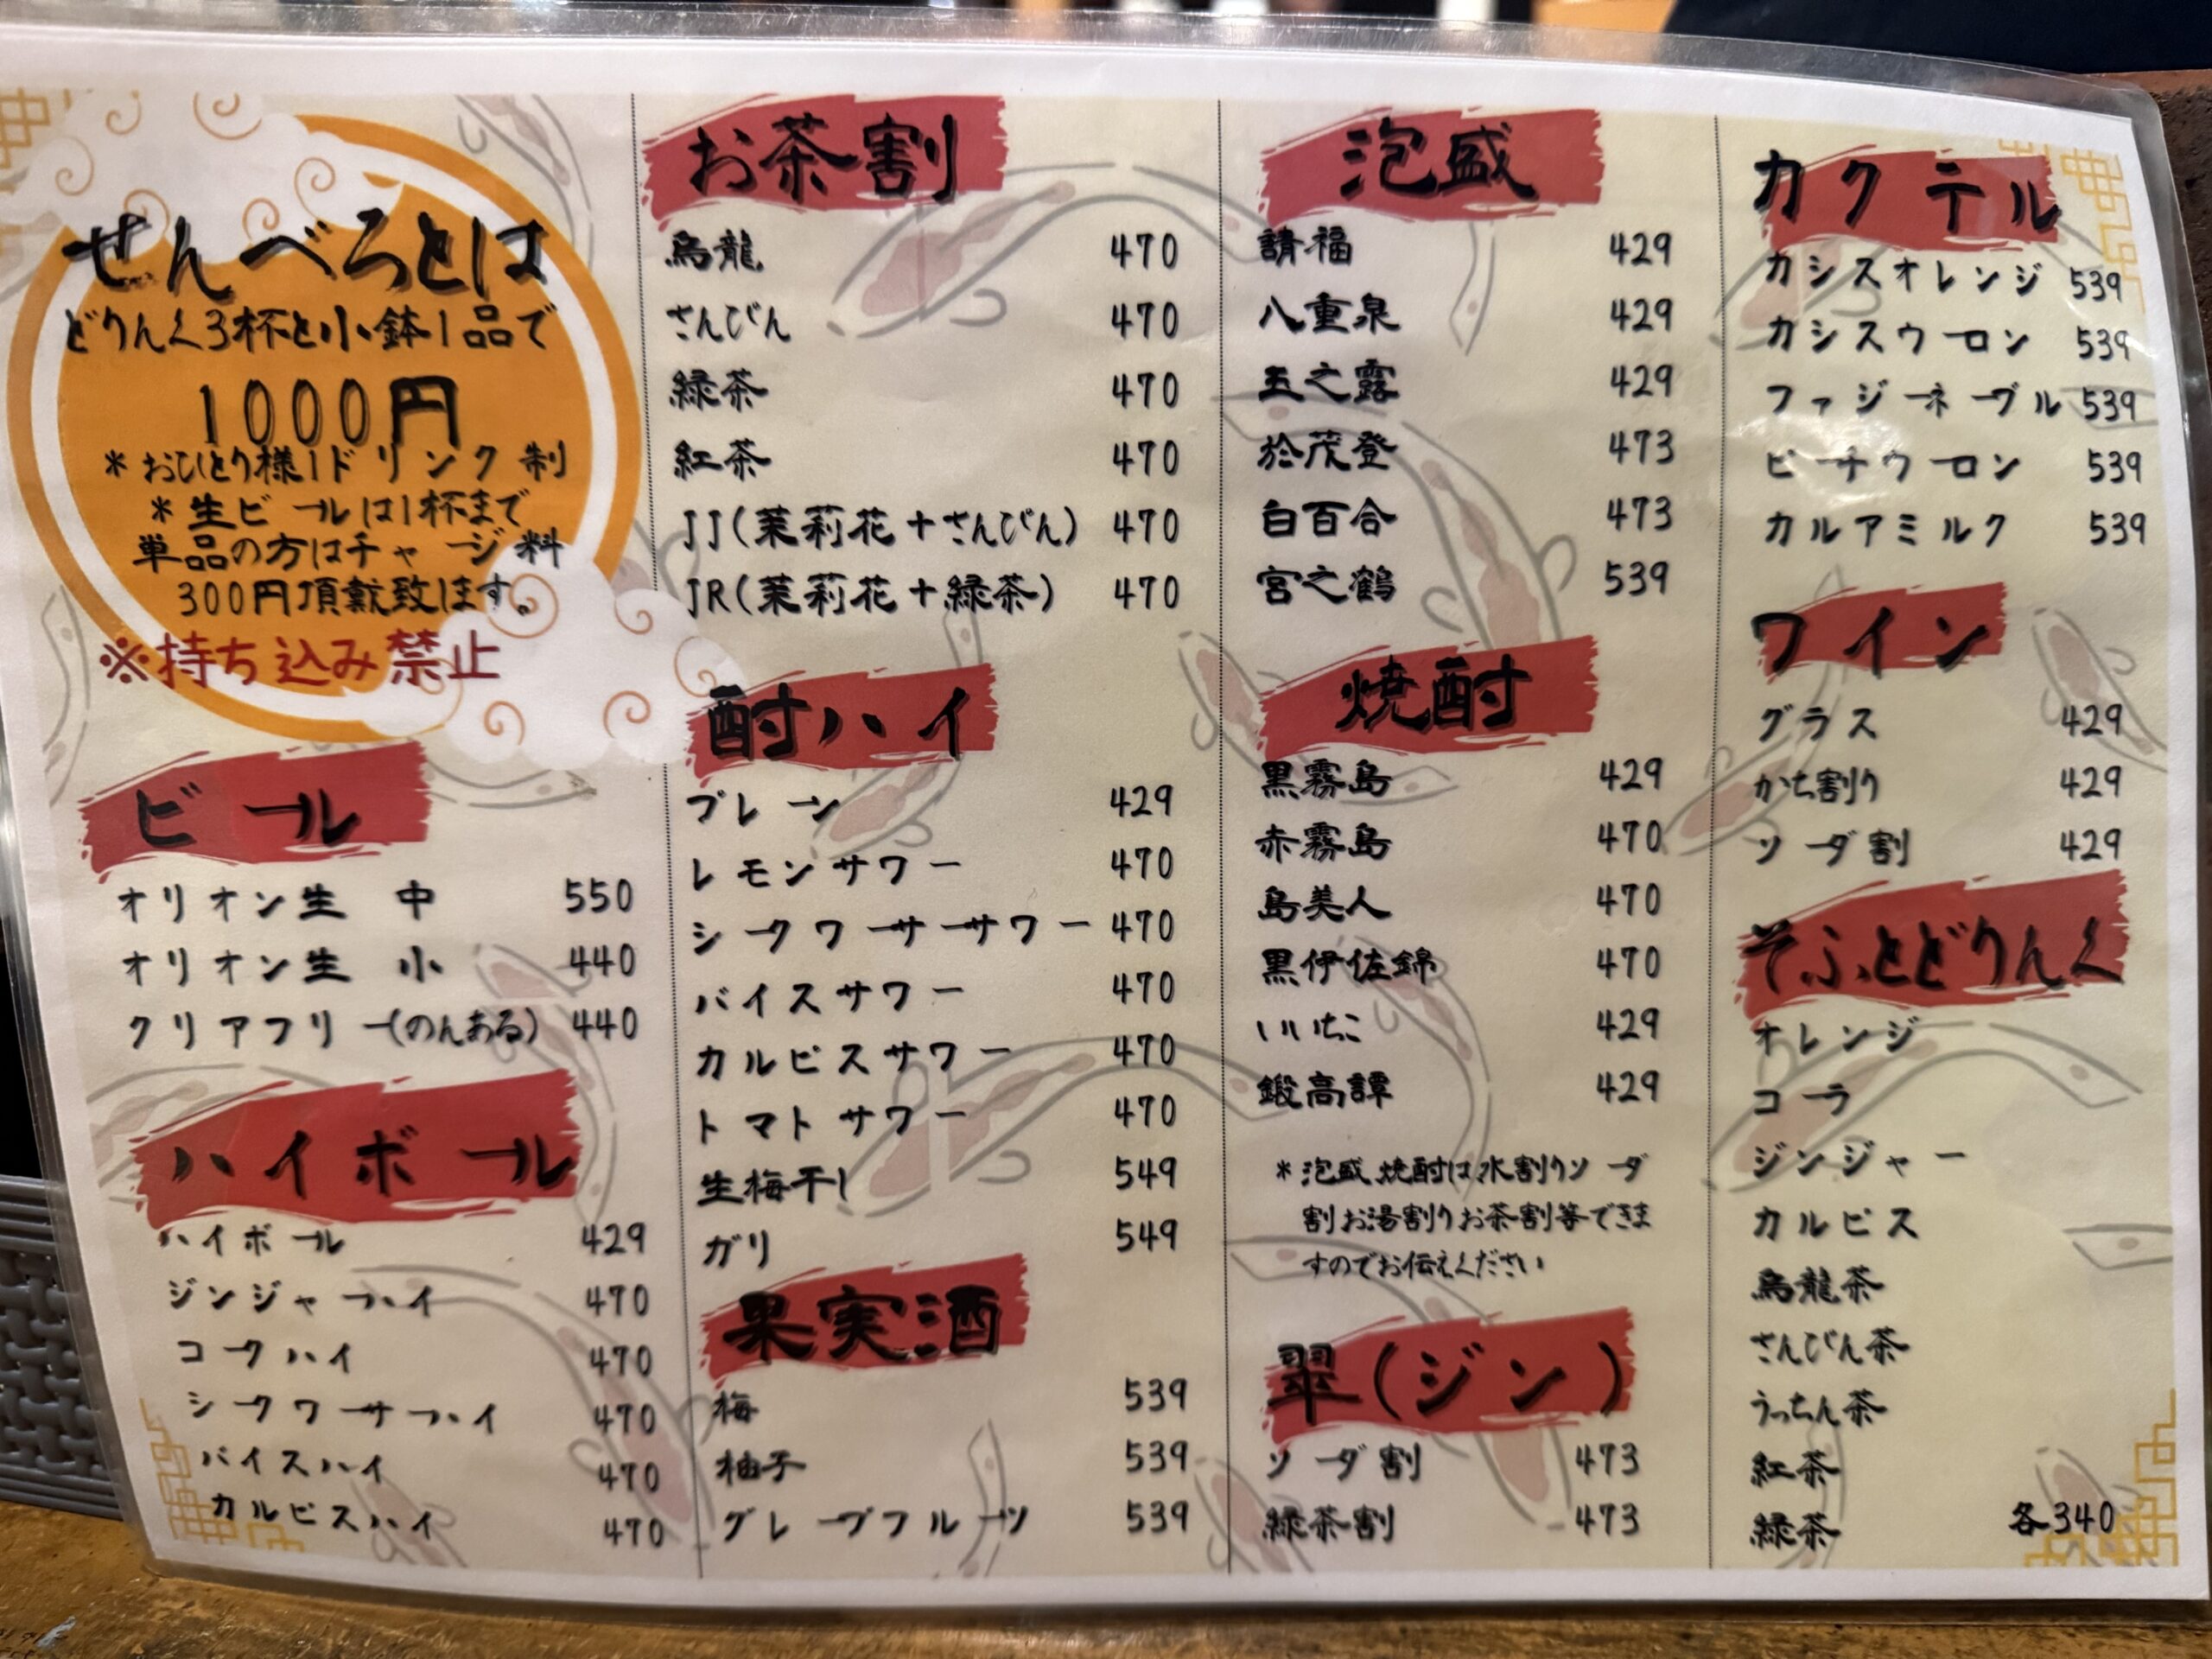 せんべろとは
どりんく3杯と小鉢1品で
1000円
*おひとり様1ドリンク制
*生ビールは1杯まで
単品の方はチャージ料
300円頂戴致します。
※持ち込み禁止
ビール
オリオン生 中 550
オリオン生 小 440
クリアフリー(のんある) 440
ハイボール
ハイボール 429
ジンジャーハイ 470
コークハイ 470
シークワーサーハイ 470
バイスハイ 470
カルピスハイ 470
お茶割
烏龍 470
さんぴん 470
緑茶 470
紅茶 470
JJ(茉莉花+さんぴん) 470
JR(茉莉花+緑茶) 470
酎ハイ
プレーン 429
レモンサワー 470
シークワーサーサワー 470
バイスサワー 470
カルピスサワー 470
トマトサワー 470
生梅干し 549
ガリ 549
果実酒
梅 539
柚子 539
グレープフルーツ 539
泡盛
請福 429
八重泉 429
玉之露 429
於茂登 473
白百合 473
宮之鶴 539
焼酎
黒霧島 429
赤霧島 470
島美人 470
黒伊佐錦 470
いいちこ 429
鍛高譚 429
*泡盛、焼酎は水割りソーダ
割お湯割りお茶割等できま
すのでお伝えください
翠(ジン)
ソーダ割 473
緑茶割 473
カクテル
カシスオレンジ 539
カシスウーロン 539
ファジーネーブル 539
ピーチウーロン 539
カルアミルク 539
ワイン
グラス 429
かち割り 429
ソーダ割 429
そふとどりんく
オレンジ
コーラ
ジンジャー
カルピス
烏龍茶
さんぴん茶
うっちん茶
紅茶
緑茶 各340